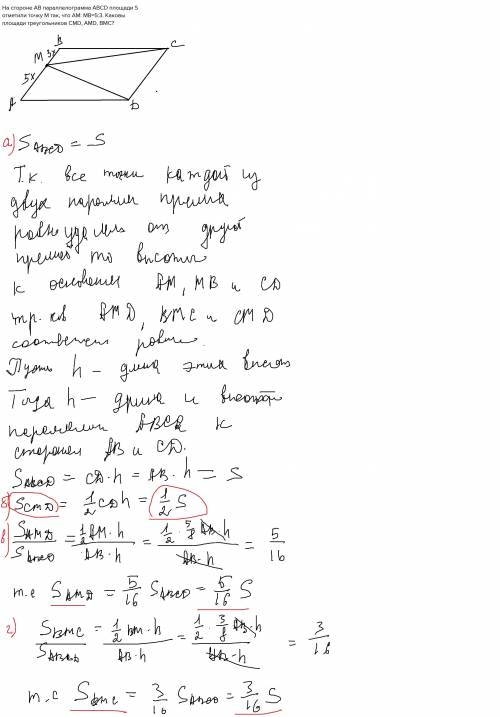 На стороне AB параллелограмма ABCD площади S
отметили точку M так, что AM: MB=5:3. Каковы
площади треугольников CMD, AMD, BMC?
B
C
M 3x
5x
A
D
а) S_ABCD = S
Т.к. все точки каждой из
двух паралел прямых
равноудалены от другой
прямой то высоты
к основания AM, MB и CD
тр-ков AMD, BMC и CMD
соответствен равны.
Пусть h - длина этих высот
Тогда h - длина и высот
параллелогр ABCD к
сторонам AB и CD.
S_ABCD = CD · h = AB · h = S
б) S_CMD = 1/2 CD h = 1/2 S
в) S_AMD / S_ABCD = (1/2 AM · h) / (AB · h) = (1/2 · 5/8 AB · h) / (AB · h) = 5/16
т.е S_AMD = 5/16 S_ABCD = 5/16 S
г) S_BMC / S_ABCD = (1/2 BM · h) / (AB · h) = (1/2 · 3/8 AB · h) / (AB · h) = 3/16
т.е S_BMC = 3/16 S_ABCD = 3/16 S